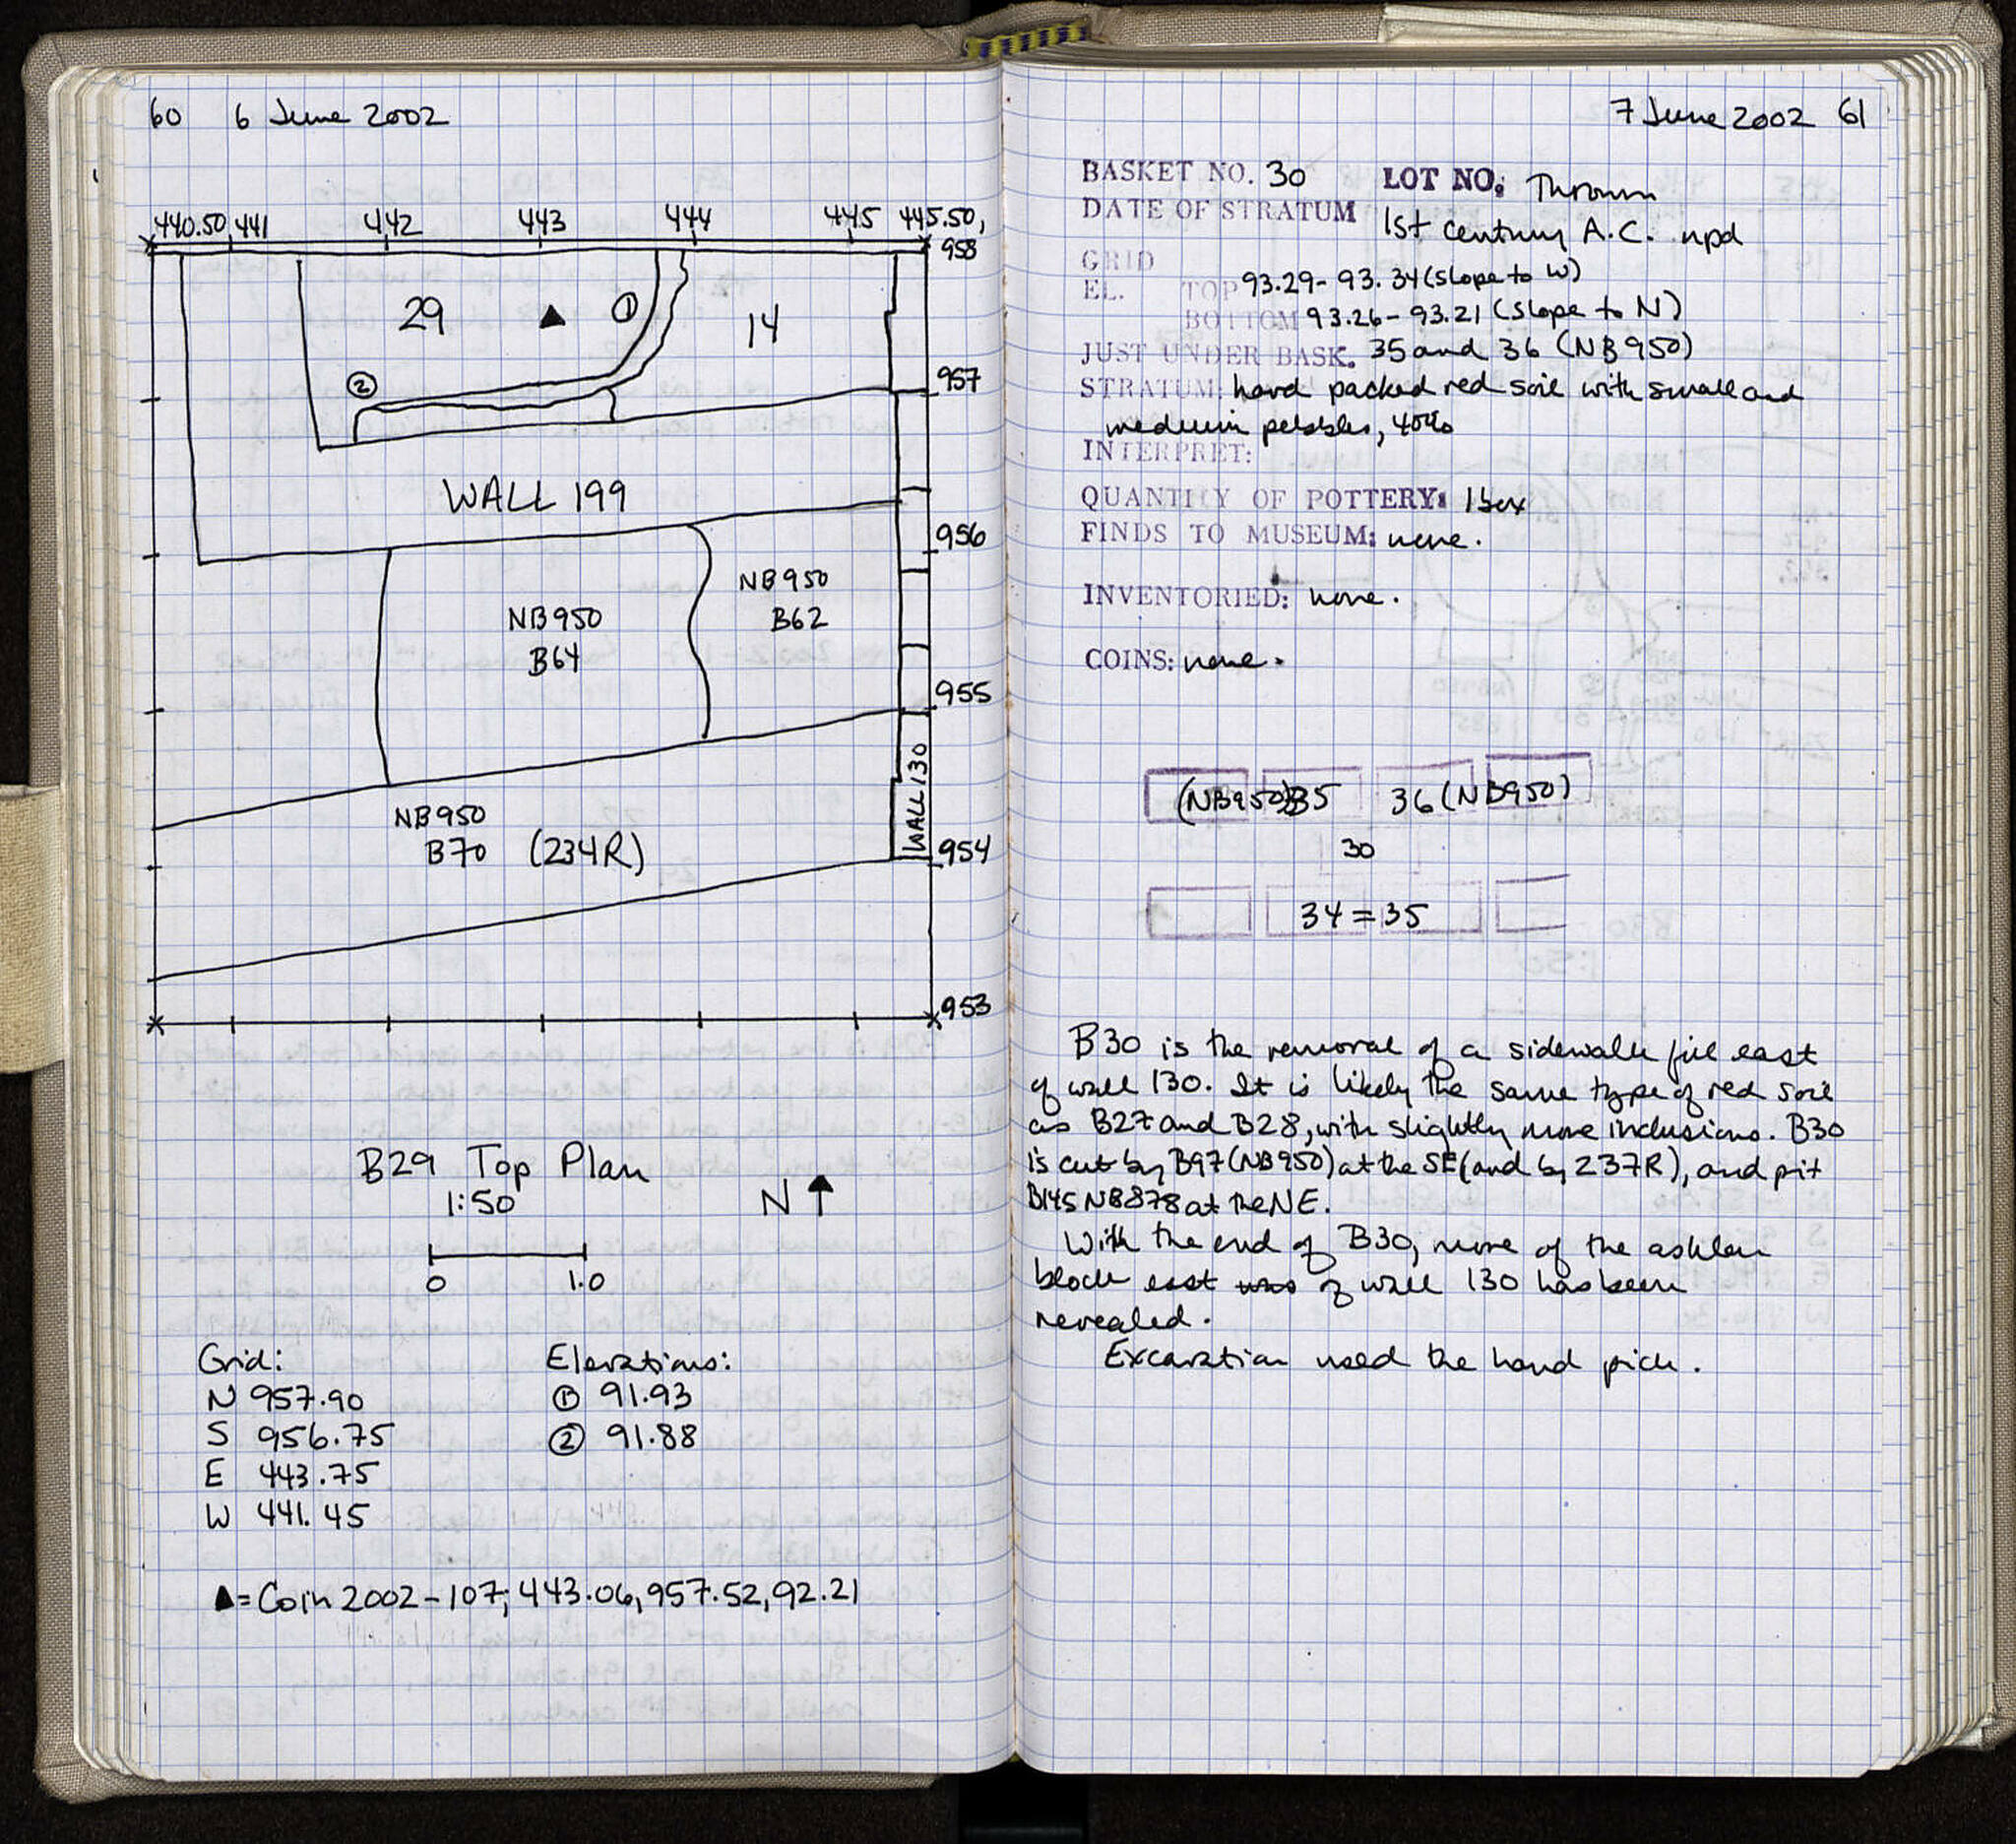 60 6 June 2002
440.50, 441 442 443 444 445 445.50,
958
29 ▲ ① 14
② 957
WALL 199
956
NB950
B62
NB950
B64
955
WALL 130
NB950
B70 (234R)
954
953
B29 Top Plan
1:50
N ↑
0 1.0
Grid:
N 957.90
S 956.75
E 443.75
W 441.45
Elevations:
① 91.93
② 91.88
▲ = Coin 2002-107; 443.06, 957.52, 92.21
7 June 2002 61
BASKET NO. 30 LOT NO: Thrown
DATE OF STRATUM 1st century A.C. npd
GRID
EL. TOP 93.29-93.34 (slope to W)
BOTTOM 93.26-93.21 (slope to N)
JUST UNDER BASK. 35 and 36 (NB950)
STRATUM: hard packed red soil with small and
medium pebbles, 40%
INTERPRET:
QUANTITY OF POTTERY: 1 box
FINDS TO MUSEUM: none.
INVENTORIED: none.
COINS: none.
(NB950) 35 36 (NB950)
30
34 = 35
B30 is the removal of a sidewalk fill east
of wall 130. It is likely the same type of red soil
as B27 and B28, with slightly more inclusions. B30
is cut by B97 (NB950) at the SE (and by 237R), and pit
B145 NB878 at the NE.
With the end of B30, more of the ashlar
block east of wall 130 has been
revealed.
Excavation used the hand pick.